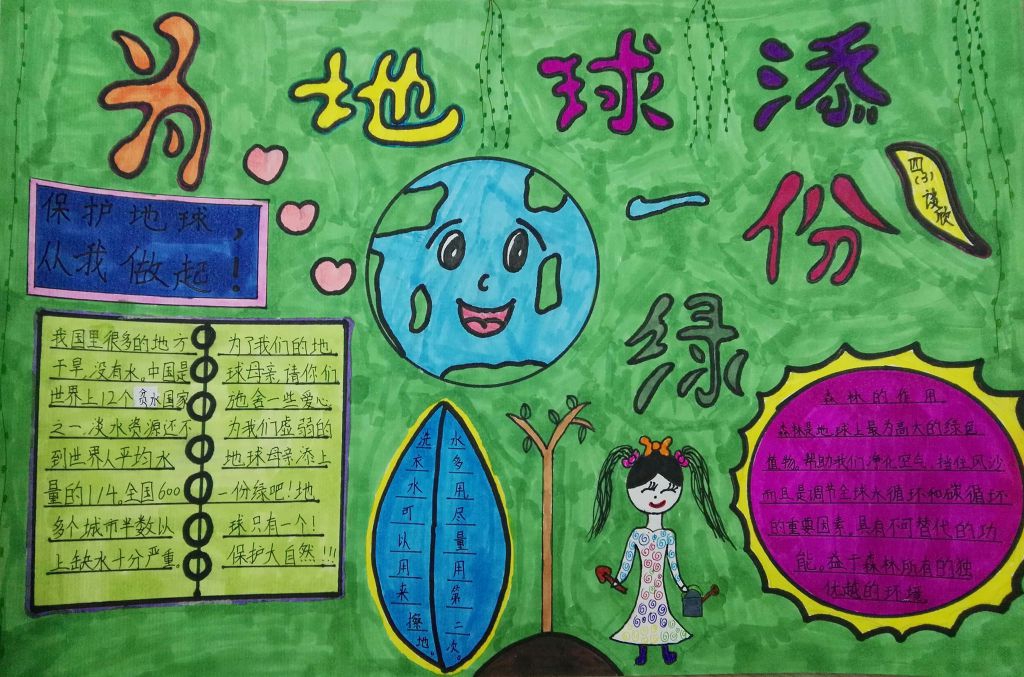 为地球添
一份
绿
四(3)
谈欣
保护地球，
从我做起！
我国里很多的地方
干旱,没有水,中国是
世界上12个贫水国家
之一,淡水资源还不
到世界人平均水
量的1/4。全国600
多个城市半数以
上缺水十分严重。
为了我们的地
球母亲,请你们
施舍一些爱心
为我们虚弱的
地球母亲添上
一份绿吧！地
球只有一个！
保护大自然!!!
水多用尽量用第二次。
洗衣水可以用来擦地。
森林的作用
森林是地球上最为高大的绿色
植物。帮助我们净化空气,挡住风沙
而且是调节全球水循环和碳循环
的重要因素,具有不可替代的功
能。益于森林所有的独
优越的环境